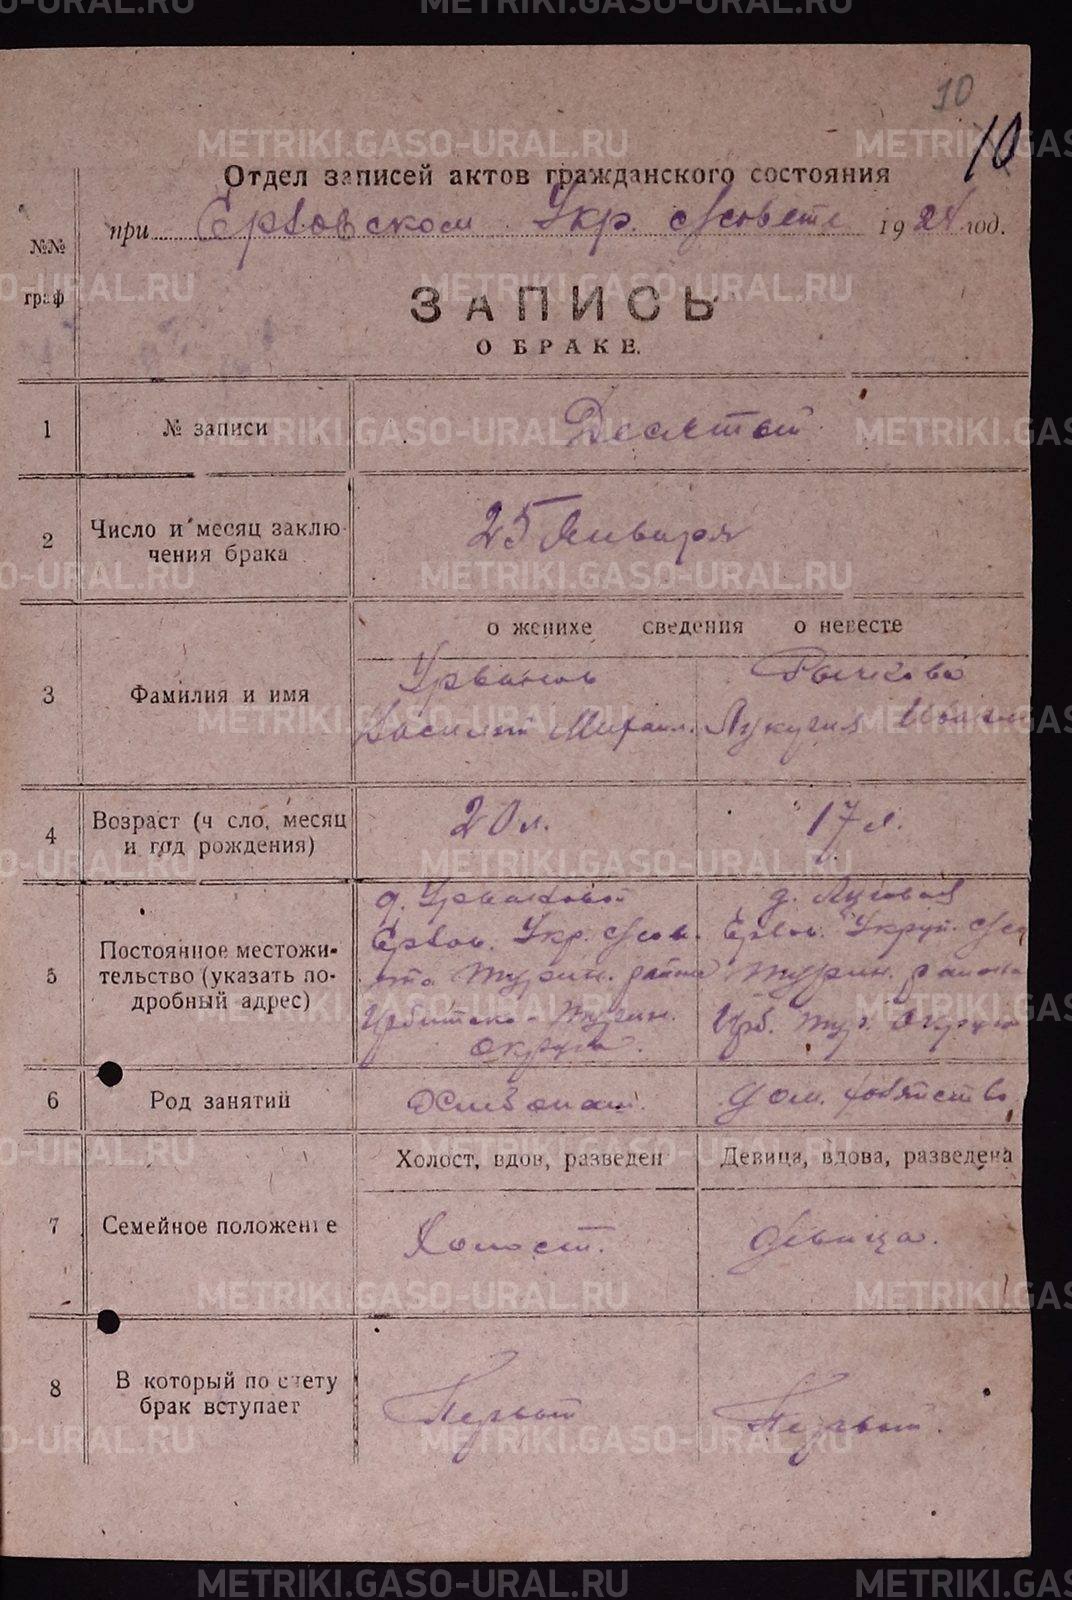 10
10
Отдел записей актов гражданского состояния
при Ерзовском Укр. Совете 1924 год.
№№
граф
ЗАПИСЬ
О БРАКЕ.
1 № записи Десятый
2 Число и месяц заключения брака 25 Января
о женихе сведения о невесте
3 Фамилия и имя
Урванов Рычкова
Василий Михаил. Лукерия Иван
4 Возраст (число, месяц и год рождения) 20 л. 17 л.
5 Постоянное местожительство (указать подробный адрес)
д. Урвановой д. Луговая
Ерзов. Укр. Сов. Ерзов. Укруп. Сов
Турин. района Турин. района
Ирбитско-Турин. Ирб. Тур. Округа
округа.
6 Род занятий Хлебопаш. дом.
Холост, вдов, разведен Девица, вдова, разведена
7 Семейное положение Холост. девица.
8 В который по счету брак вступает Первый Первый.
METRIKI.GASO-URAL.RU